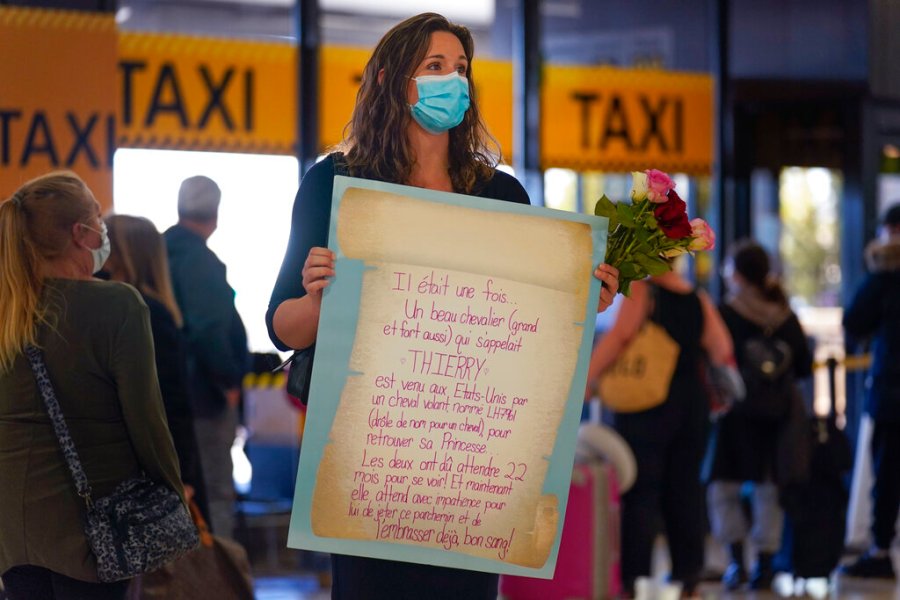 TAXI
TAXI
TAXI
TAXI
Il était une fois...
Un beau chevalier (grand
et fort aussi) qui s'appelait
♡ THIERRY ♡
est venu aux Etats-Unis par
un cheval volant nommé LH7961
(drôle de nom pour un cheval) pour
retrouver sa Princesse.
Les deux ont dû attendre 22
mois pour se voir! Et maintenant
elle, attend avec impatience pour
lui de jeter ce parchemin et de
l'embrasser déjà, bon sang!